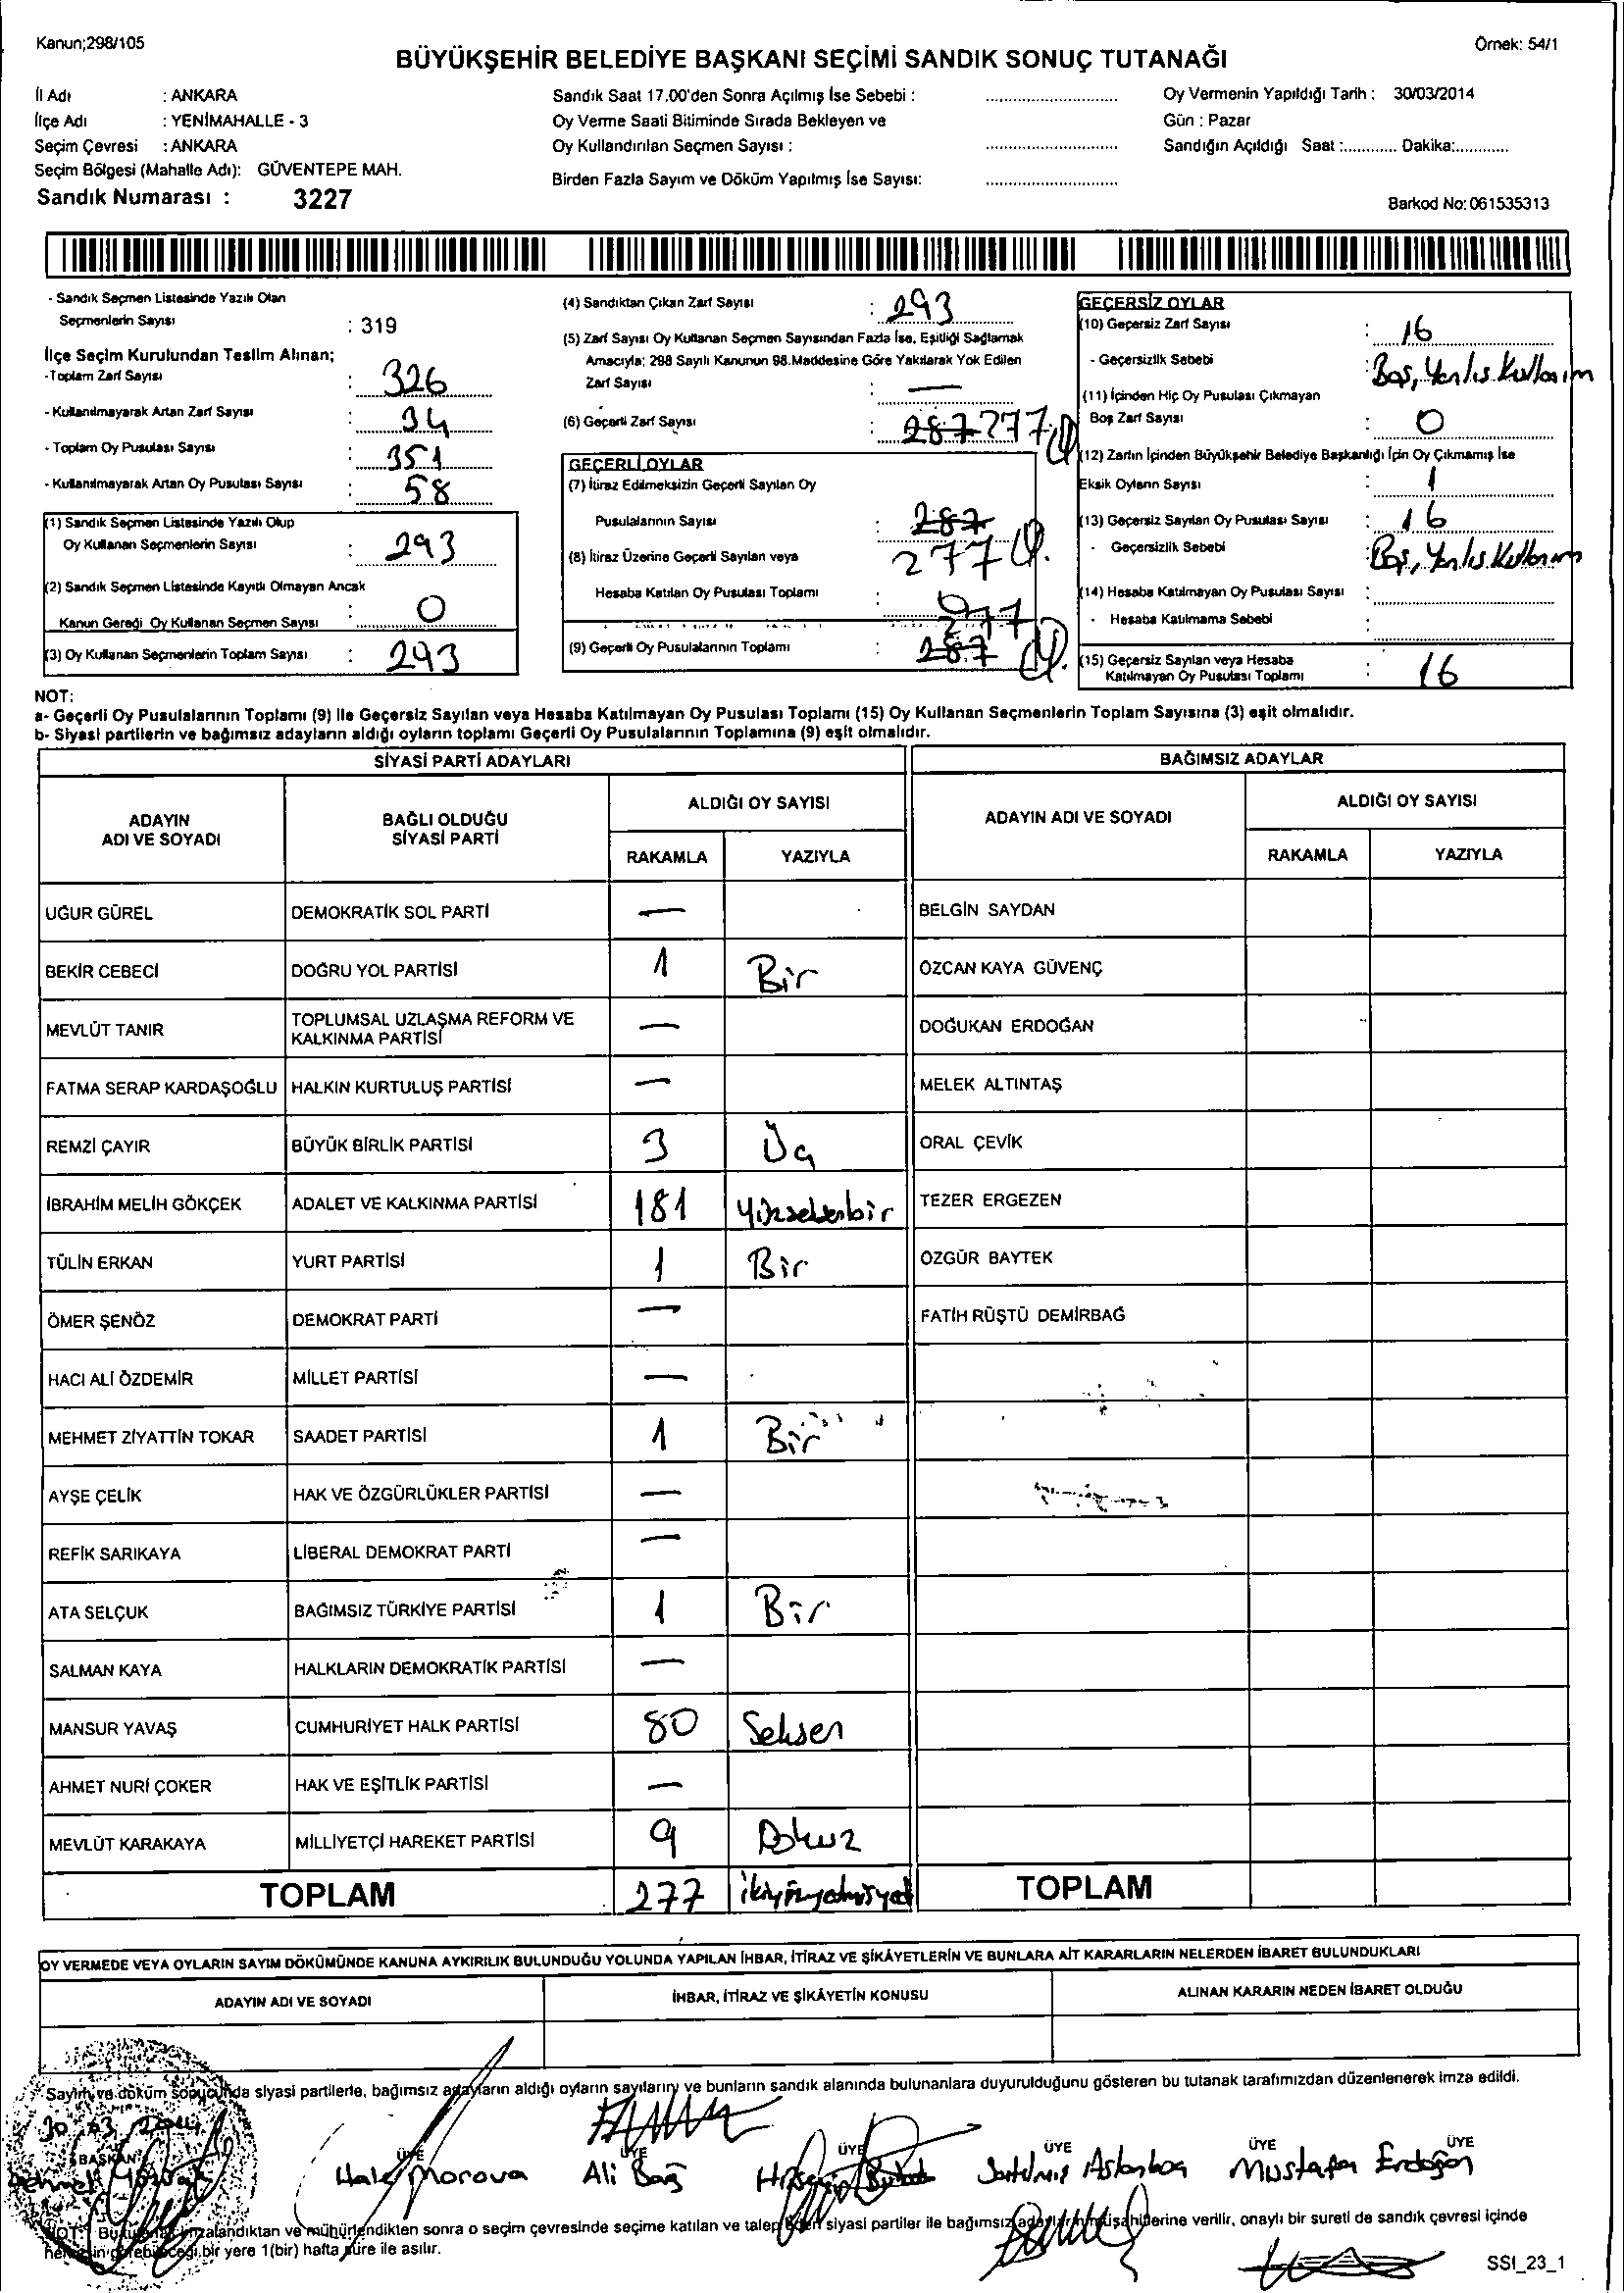 Kanun;298/105
Örnek: 54/1
BÜYÜKŞEHİR BELEDİYE BAŞKANI SEÇİMİ SANDIK SONUÇ TUTANAĞI
İl Adı : ANKARA
İlçe Adı : YENİMAHALLE - 3
Seçim Çevresi : ANKARA
Seçim Bölgesi (Mahalle Adı): GÜVENTEPE MAH.
Sandık Numarası : 3227
Sandık Saat 17.00'den Sonra Açılmış İse Sebebi :
Oy Verme Saati Bitiminde Sırada Bekleyen ve
Oy Kullandırılan Seçmen Sayısı :
Birden Fazla Sayım ve Döküm Yapılmış İse Sayısı:
Oy Vermenin Yapıldığı Tarih : 30/03/2014
Gün : Pazar
Sandığın Açıldığı Saat :............ Dakika:............
Barkod No: 061535313
- Sandık Seçmen Listesinde Yazılı Olan
Seçmenlerin Sayısı : 319
İlçe Seçim Kurulundan Teslim Alınan;
-Toplam Zarf Sayısı : 326
- Kullanılmayarak Artan Zarf Sayısı : 34
- Toplam Oy Pusulası Sayısı : 351
- Kullanılmayarak Artan Oy Pusulası Sayısı : 58
(1) Sandık Seçmen Listesinde Yazılı Olup
Oy Kullanan Seçmenlerin Sayısı : 293
(2) Sandık Seçmen Listesinde Kayıtlı Olmayan Ancak
Kanun Gereği Oy Kullanan Seçmen Sayısı : 0
(3) Oy Kullanan Seçmenlerin Toplam Sayısı : 293
(4) Sandıktan Çıkan Zarf Sayısı : 293
(5) Zarf Sayısı Oy Kullanan Seçmen Sayısından Fazla İse, Eşitliği Sağlamak
Amacıyla; 298 Sayılı Kanunun 98.Maddesine Göre Yakılarak Yok Edilen
Zarf Sayısı : —
(6) Geçerli Zarf Sayısı : 287 277
GEÇERLİ OYLAR
(7) İtiraz Edilmeksizin Geçerli Sayılan Oy
Pusulalarının Sayısı : 287
277
(8) İtiraz Üzerine Geçerli Sayılan veya
Hesaba Katılan Oy Pusulası Toplamı :
277
(9) Geçerli Oy Pusulalarının Toplamı : 287
GEÇERSİZ OYLAR
(10) Geçersiz Zarf Sayısı : 16
- Geçersizlik Sebebi : Boş, Yanlış Kullanım
(11) İçinden Hiç Oy Pusulası Çıkmayan
Boş Zarf Sayısı : 0
(12) Zarfın İçinden Büyükşehir Belediye Başkanlığı İçin Oy Çıkmamış İse
Eksik Oyların Sayısı : 1
(13) Geçersiz Sayılan Oy Pusulası Sayısı : 16
- Geçersizlik Sebebi : Boş, Yanlış Kullanım
(14) Hesaba Katılmayan Oy Pusulası Sayısı :
- Hesaba Katılmama Sebebi :
(15) Geçersiz Sayılan veya Hesaba
Katılmayan Oy Pusulası Toplamı : 16
NOT:
a- Geçerli Oy Pusulalarının Toplamı (9) ile Geçersiz Sayılan veya Hesaba Katılmayan Oy Pusulası Toplamı (15) Oy Kullanan Seçmenlerin Toplam Sayısına (3) eşit olmalıdır.
b- Siyasi partilerin ve bağımsız adayların aldığı oyların toplamı Geçerli Oy Pusulalarının Toplamına (9) eşit olmalıdır.
SİYASİ PARTİ ADAYLARI
BAĞIMSIZ ADAYLAR
ADAYIN ADI VE SOYADI
BAĞLI OLDUĞU SİYASİ PARTİ
ALDIĞI OY SAYISI
RAKAMLA YAZIYLA
ADAYIN ADI VE SOYADI
ALDIĞI OY SAYISI
RAKAMLA YAZIYLA
UĞUR GÜREL DEMOKRATİK SOL PARTİ — BELGİN SAYDAN
BEKİR CEBECİ DOĞRU YOL PARTİSİ 1 Bir ÖZCAN KAYA GÜVENÇ
MEVLÜT TANIR TOPLUMSAL UZLAŞMA REFORM VE KALKINMA PARTİSİ — DOĞUKAN ERDOĞAN
FATMA SERAP KARDAŞOĞLU HALKIN KURTULUŞ PARTİSİ — MELEK ALTINTAŞ
REMZİ ÇAYIR BÜYÜK BİRLİK PARTİSİ 3 Üç ORAL ÇEVİK
İBRAHİM MELİH GÖKÇEK ADALET VE KALKINMA PARTİSİ 181 Yüzseksenbir TEZER ERGEZEN
TÜLİN ERKAN YURT PARTİSİ 1 Bir ÖZGÜR BAYTEK
ÖMER ŞENÖZ DEMOKRAT PARTİ — FATİH RÜŞTÜ DEMİRBAĞ
HACI ALİ ÖZDEMİR MİLLET PARTİSİ —
MEHMET ZİYATTİN TOKAR SAADET PARTİSİ 1 Bir
AYŞE ÇELİK HAK VE ÖZGÜRLÜKLER PARTİSİ —
REFİK SARIKAYA LİBERAL DEMOKRAT PARTİ —
ATA SELÇUK BAĞIMSIZ TÜRKİYE PARTİSİ 1 Bir
SALMAN KAYA HALKLARIN DEMOKRATİK PARTİSİ —
MANSUR YAVAŞ CUMHURİYET HALK PARTİSİ 80 Seksen
AHMET NURİ ÇOKER HAK VE EŞİTLİK PARTİSİ —
MEVLÜT KARAKAYA MİLLİYETÇİ HAREKET PARTİSİ 9 Dokuz
TOPLAM 277 ikiyüzyetmişyedi TOPLAM
OY VERMEDE VEYA OYLARIN SAYIM DÖKÜMÜNDE KANUNA AYKIRILIK BULUNDUĞU YOLUNDA YAPILAN İHBAR, İTİRAZ VE ŞİKÂYETLERİN VE BUNLARA AİT KARARLARIN NELERDEN İBARET BULUNDUKLARI
ADAYIN ADI VE SOYADI İHBAR, İTİRAZ VE ŞİKÂYETİN KONUSU ALINAN KARARIN NEDEN İBARET OLDUĞU
Sayım ve döküm sonucunda siyasi partilerle, bağımsız adayların aldığı oyların sayılarını ve bunların sandık alanında bulunanlara duyurulduğunu gösteren bu tutanak tarafımızdan düzenlenerek imza edildi.
30.03.2014
BAŞKAN ÜYE ÜYE ÜYE ÜYE ÜYE ÜYE
Hale Morova Ali Bağ Satılmış Aslanbaş Mustafa Erdoğan
NOT: Bu tutanak imzalandıktan ve mühürlendikten sonra o seçim çevresinde seçime katılan ve talep eden siyasi partiler ile bağımsız adayların müşahitlerine verilir, onaylı bir sureti de sandık çevresi içinde
herkesin görebileceği bir yere 1(bir) hafta süre ile asılır.
SSI_23_1